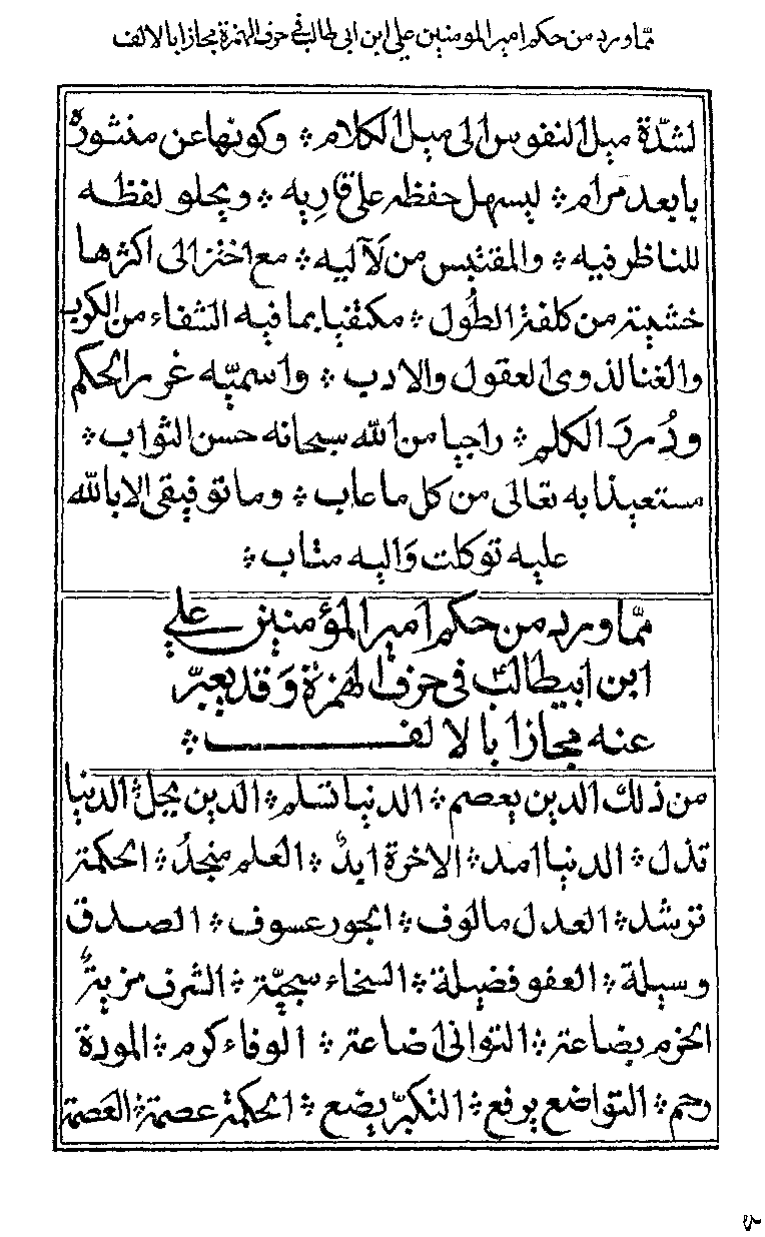 مما ورد من حكم امير المومنين علي ابن ابي طالب في حرف الهمزة مجازا بالالف
لشدّة ميل النفوس الى ميل الكلام ؞ وكونها عن منثورهٔ
بابعد مرام ؞ ليسهل حفظه على قارِيه ؞ ويحلو لفظه
للناظر فيه ؞ والمقتبس من لآليه ؞ مع اختزالى اكثرها
خشية من كلفة الطُول ؞ مكتفيا بما فيه الشفاء من الكروب
والغنا لذوى العقول والادب ؞ واسميّه غرر الحكم
ودُررَ الكلم ؞ راجيا من الله سبحانه حسن الثواب ؞
مستعيذا به تعالى من كل ما عاب ؞ وما توفيقى الا بالله
عليه توكلت وَاليه متاب ؞
ممّا ورد من حكم امير المؤمنين علي
ابن ابيطالب في حرف الهمزة وَقد يعبّر
عنه مجازا بالالف ؞
من ذلك الدين يعصم ؞ الدنيا تسلم ؞ الدين يجل ؞ الدنيا
تذل ؞ الدنيا امد ؞ الاخرة ابدٌ ؞ العلم منجدٌ ؞ الحكمة
ترشد ؞ العدل مالوف ؞ الجور عسوف ؞ الصدق
وسيلة ؞ العفو فضيلة ؞ السخاء سجيّة ؞ الشرف مزيةٌ
الحزم بضاعة ؞ التوانى اضاعة ؞ الوفاء كرم ؞ المودة
رحم ؞ التواضع يرفع ؞ التكبّر يضع ؞ الحكمة عصمة ؞ العَصمة